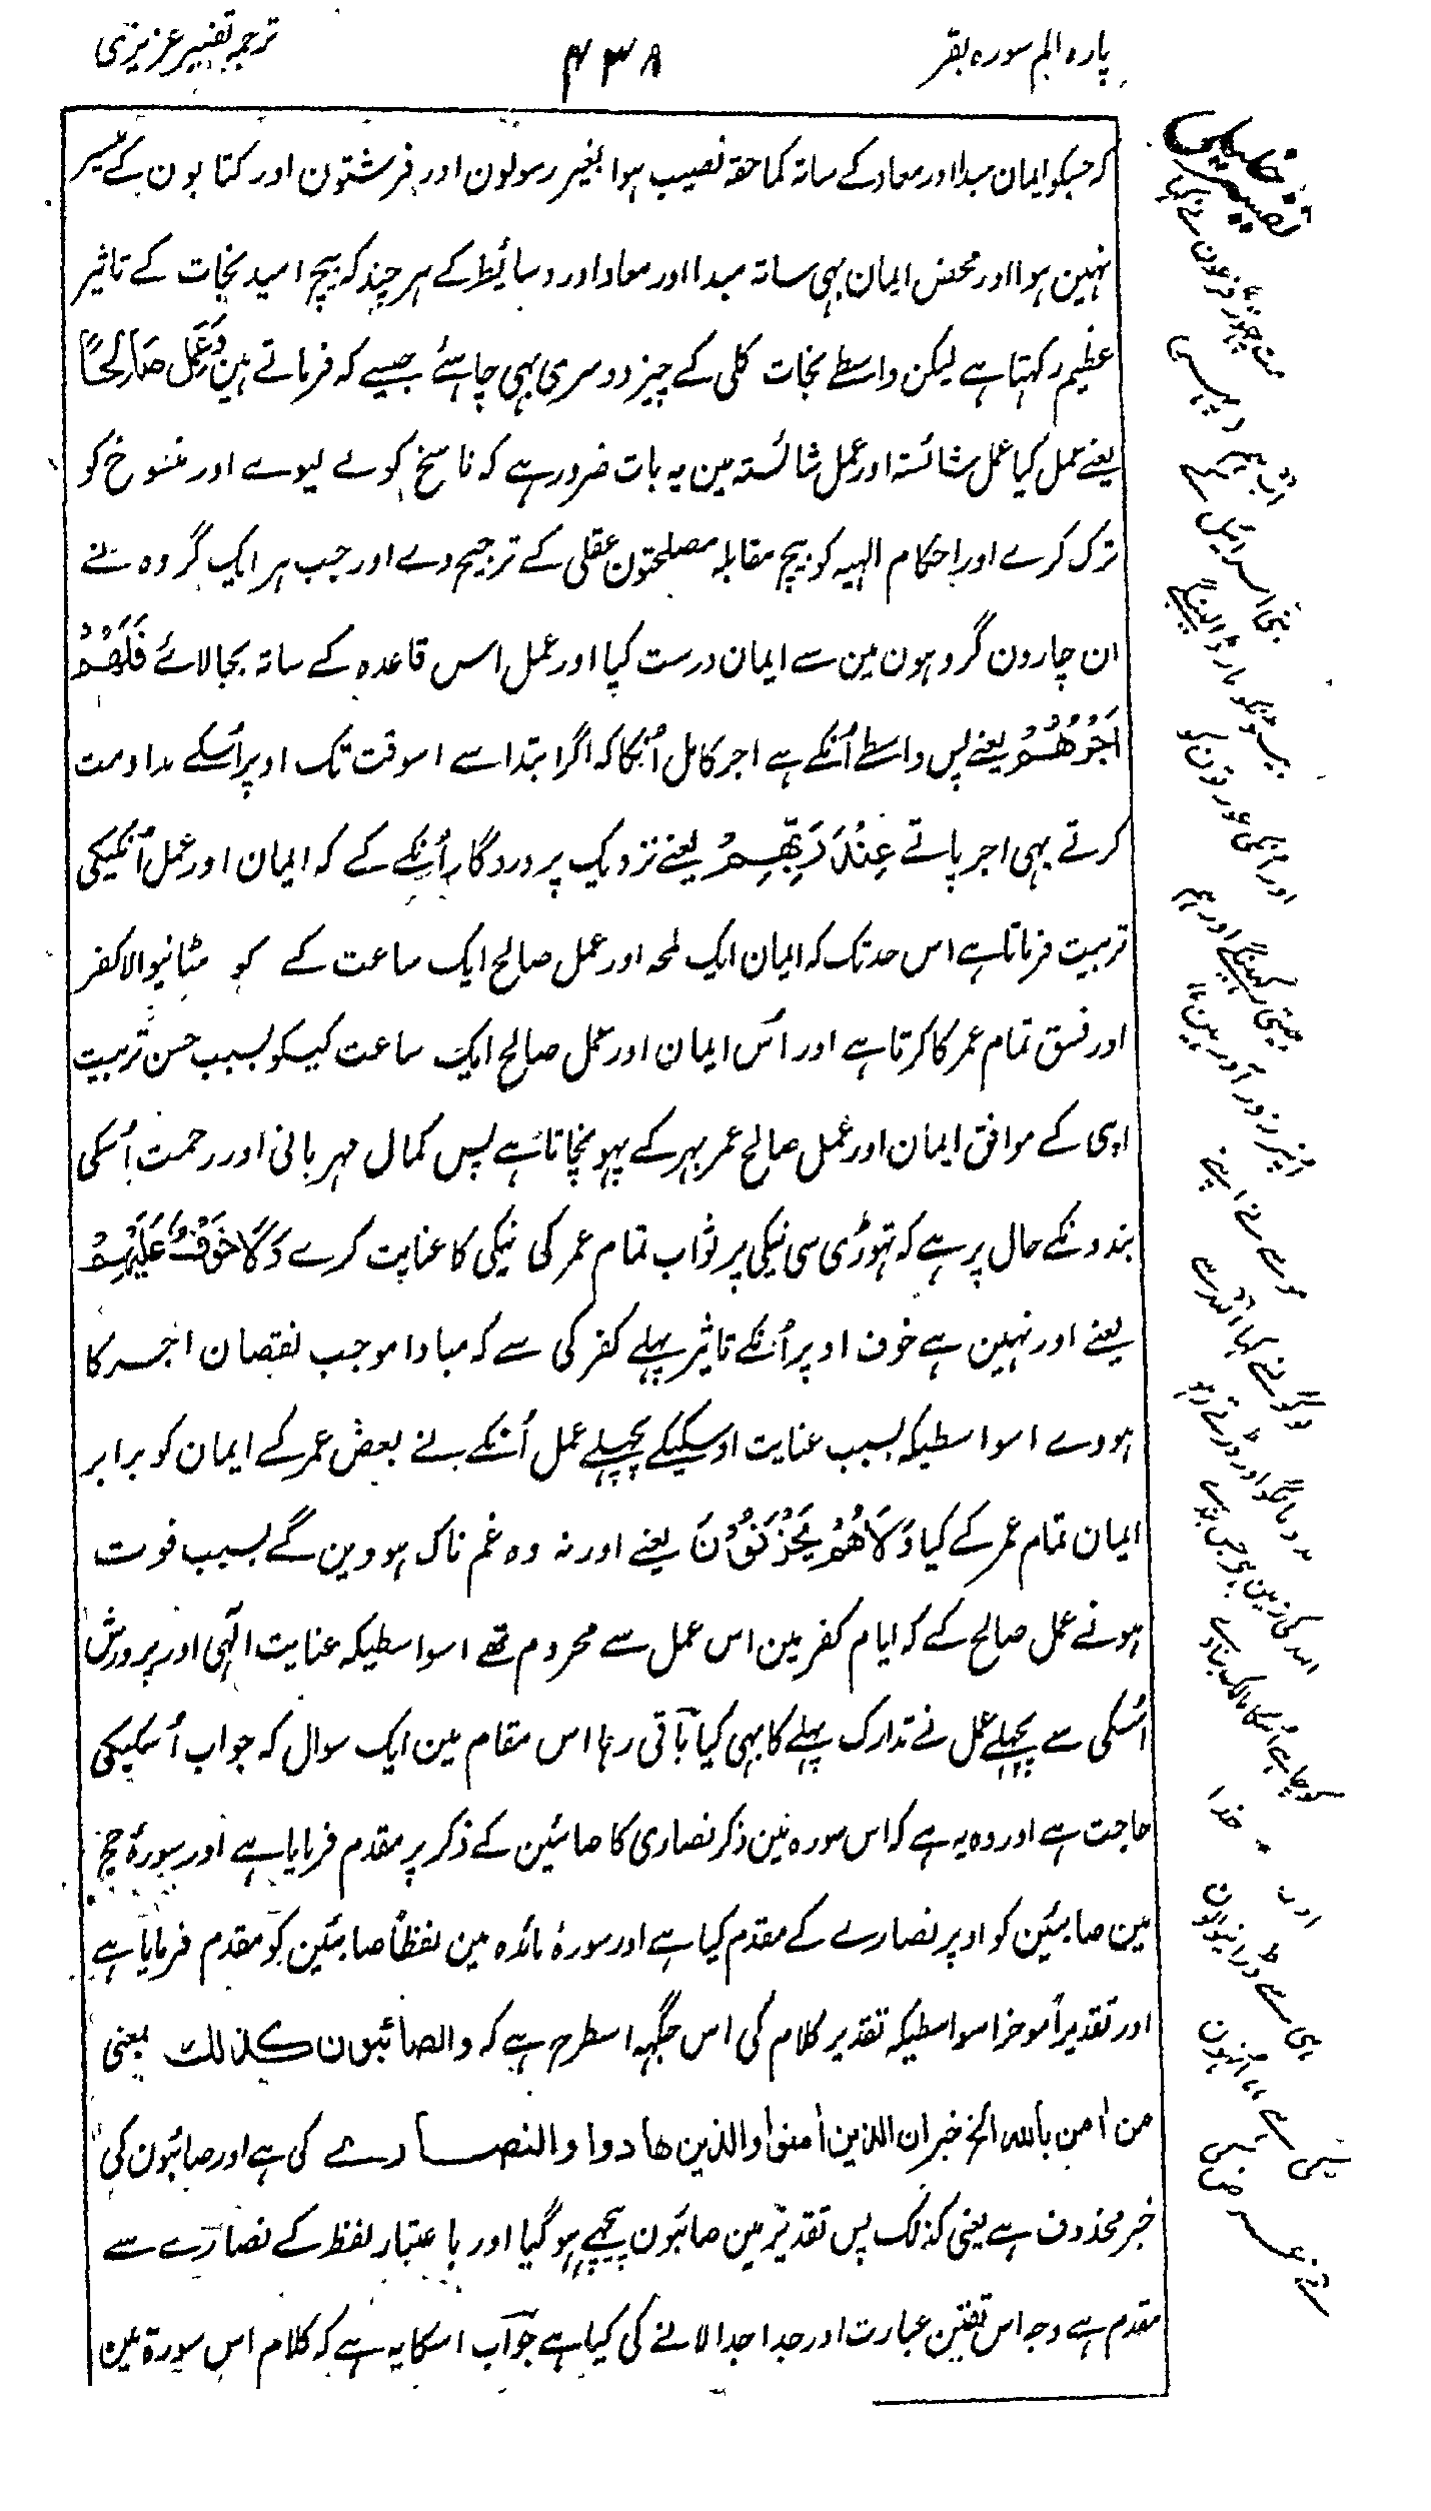 پاره الم سوره بقر
۴۳۸
ترجمہ تفسیر عزیزی
کہ جسکو ایمان مبدا اور معاد کے ساتہ کما حقہ نصیب ہوا بغیر رسولون اور فرشتون اور کتابون کے میسر
نہین ہوا اور محض ایمان بہی ساتہ مبدا اور معاد اور وسائیط کے ہر چند کہ بیچ امید نجات کے تاثیر
عظیم رکہتا ہے لیکن واسطے نجات کلی کے چیز دوسری بہی چاہئے جیسے کہ فرماتے ہین وَعَمِلَ صَالِحًا
یعنے عمل کیا عمل شائستہ اور عمل شائستہ مین یہ بات ضرور ہے کہ ناسخ کو لے لیوے اور منسوخ کو
ترک کرے اور احکام الہیہ کو بیچ مقابلہ مصلحتون عقلی کے ترجیح دے اور جب ہر ایک گروہ نے
ان چارون گروہون مین سے ایمان درست کیا اور عمل اس قاعدہ کے ساتہ بجا لائے فَلَهُمْ
اَجْرُهُمْ یعنے پس واسطے اُنکے ہے اجر کامل اُنکا کہ اگر ابتدا سے اسوقت تک اوپر اُسکے مداومت
کرتے یہی اجر پاتے عِنْدَ رَبِّهِمْ یعنے نزدیک پروردگار اُنکے کے کہ ایمان اور عمل اُنکیکی
تربیت فرماتا ہے اس حد تک کہ ایمان ایک لمحہ اور عمل صالح ایک ساعت کے کو مٹانیوالا کفر
اور فسق تمام عمر کا کرتا ہے اور اُس ایمان اور عمل صالح ایک ساعت کیکو بسبب حسن تربیت
اپنی کے موافق ایمان اور عمل صالح عمر بہر کے پہونچاتا ہے پس کمال مہربانی اور رحمت اُسکی
بندونکے حال پر ہے کہ تہوڑی سی نیکی پر ثواب تمام عمر کی نیکی کا عنایت کرے وَلَا خَوْفٌ عَلَيْهِمْ
یعنے اور نہین ہے خوف اوپر اُنکے تاثیر پہلے کفر کی سے کہ مبادا موجب نقصان اجر کا
ہووے اسواسطیکہ بسبب عنایت اوسکیکے پچہلے عمل اُنکے نے بعض عمر کے ایمان کو برابر
ایمان تمام عمر کے کیا وَلَا هُمْ يَحْزَنُوْنَ یعنے اور نہ وہ غم ناک ہووین گے بسبب فوت
ہونے عمل صالح کے کہ ایام کفر مین اس عمل سے محروم تھے اسواسطیکہ عنایت الٰہی اور پرورش
اُسکی سے پچہلے عمل نے تدارک پہلے کا بہی کیا باقی رہا اس مقام مین ایک سوال کہ جواب اُسکیکی
حاجت ہے اور وہ یہ ہے کہ اس سورہ مین ذکر نصاری کا صابئین کے ذکر پر مقدم فرمایا ہے اور سورۂ حج
مین صابئین کو اوپر نصارے کے مقدم کیا ہے اور سورۂ مائدہ مین لفظاً صابئین کو مقدم فرمایا ہے
اور تقدیراً موخر اسواسطیکہ تقدیر کلام کی اس جگہہ اسطرح ہے کہ والصائبون كذلك یعنی
من اٰمن بالله الخ خبر ان الذین اٰمنوا والذین هادوا والنصارے کی ہے اور صابئون کی
خبر محذوف ہے یعنی کذلک پس تقدیر مین صابئون پیچہے ہو گیا اور باعتبار لفظ کے نصارے سے
مقدم ہے وجہ اس تفنن عبارت اور جدا جدا لانے کی کیا ہے جواب اسکا یہ ہے کہ کلام اس سورۃ مین